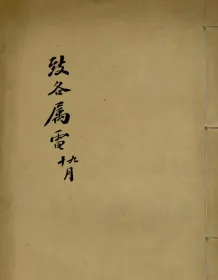 致各属電九十月